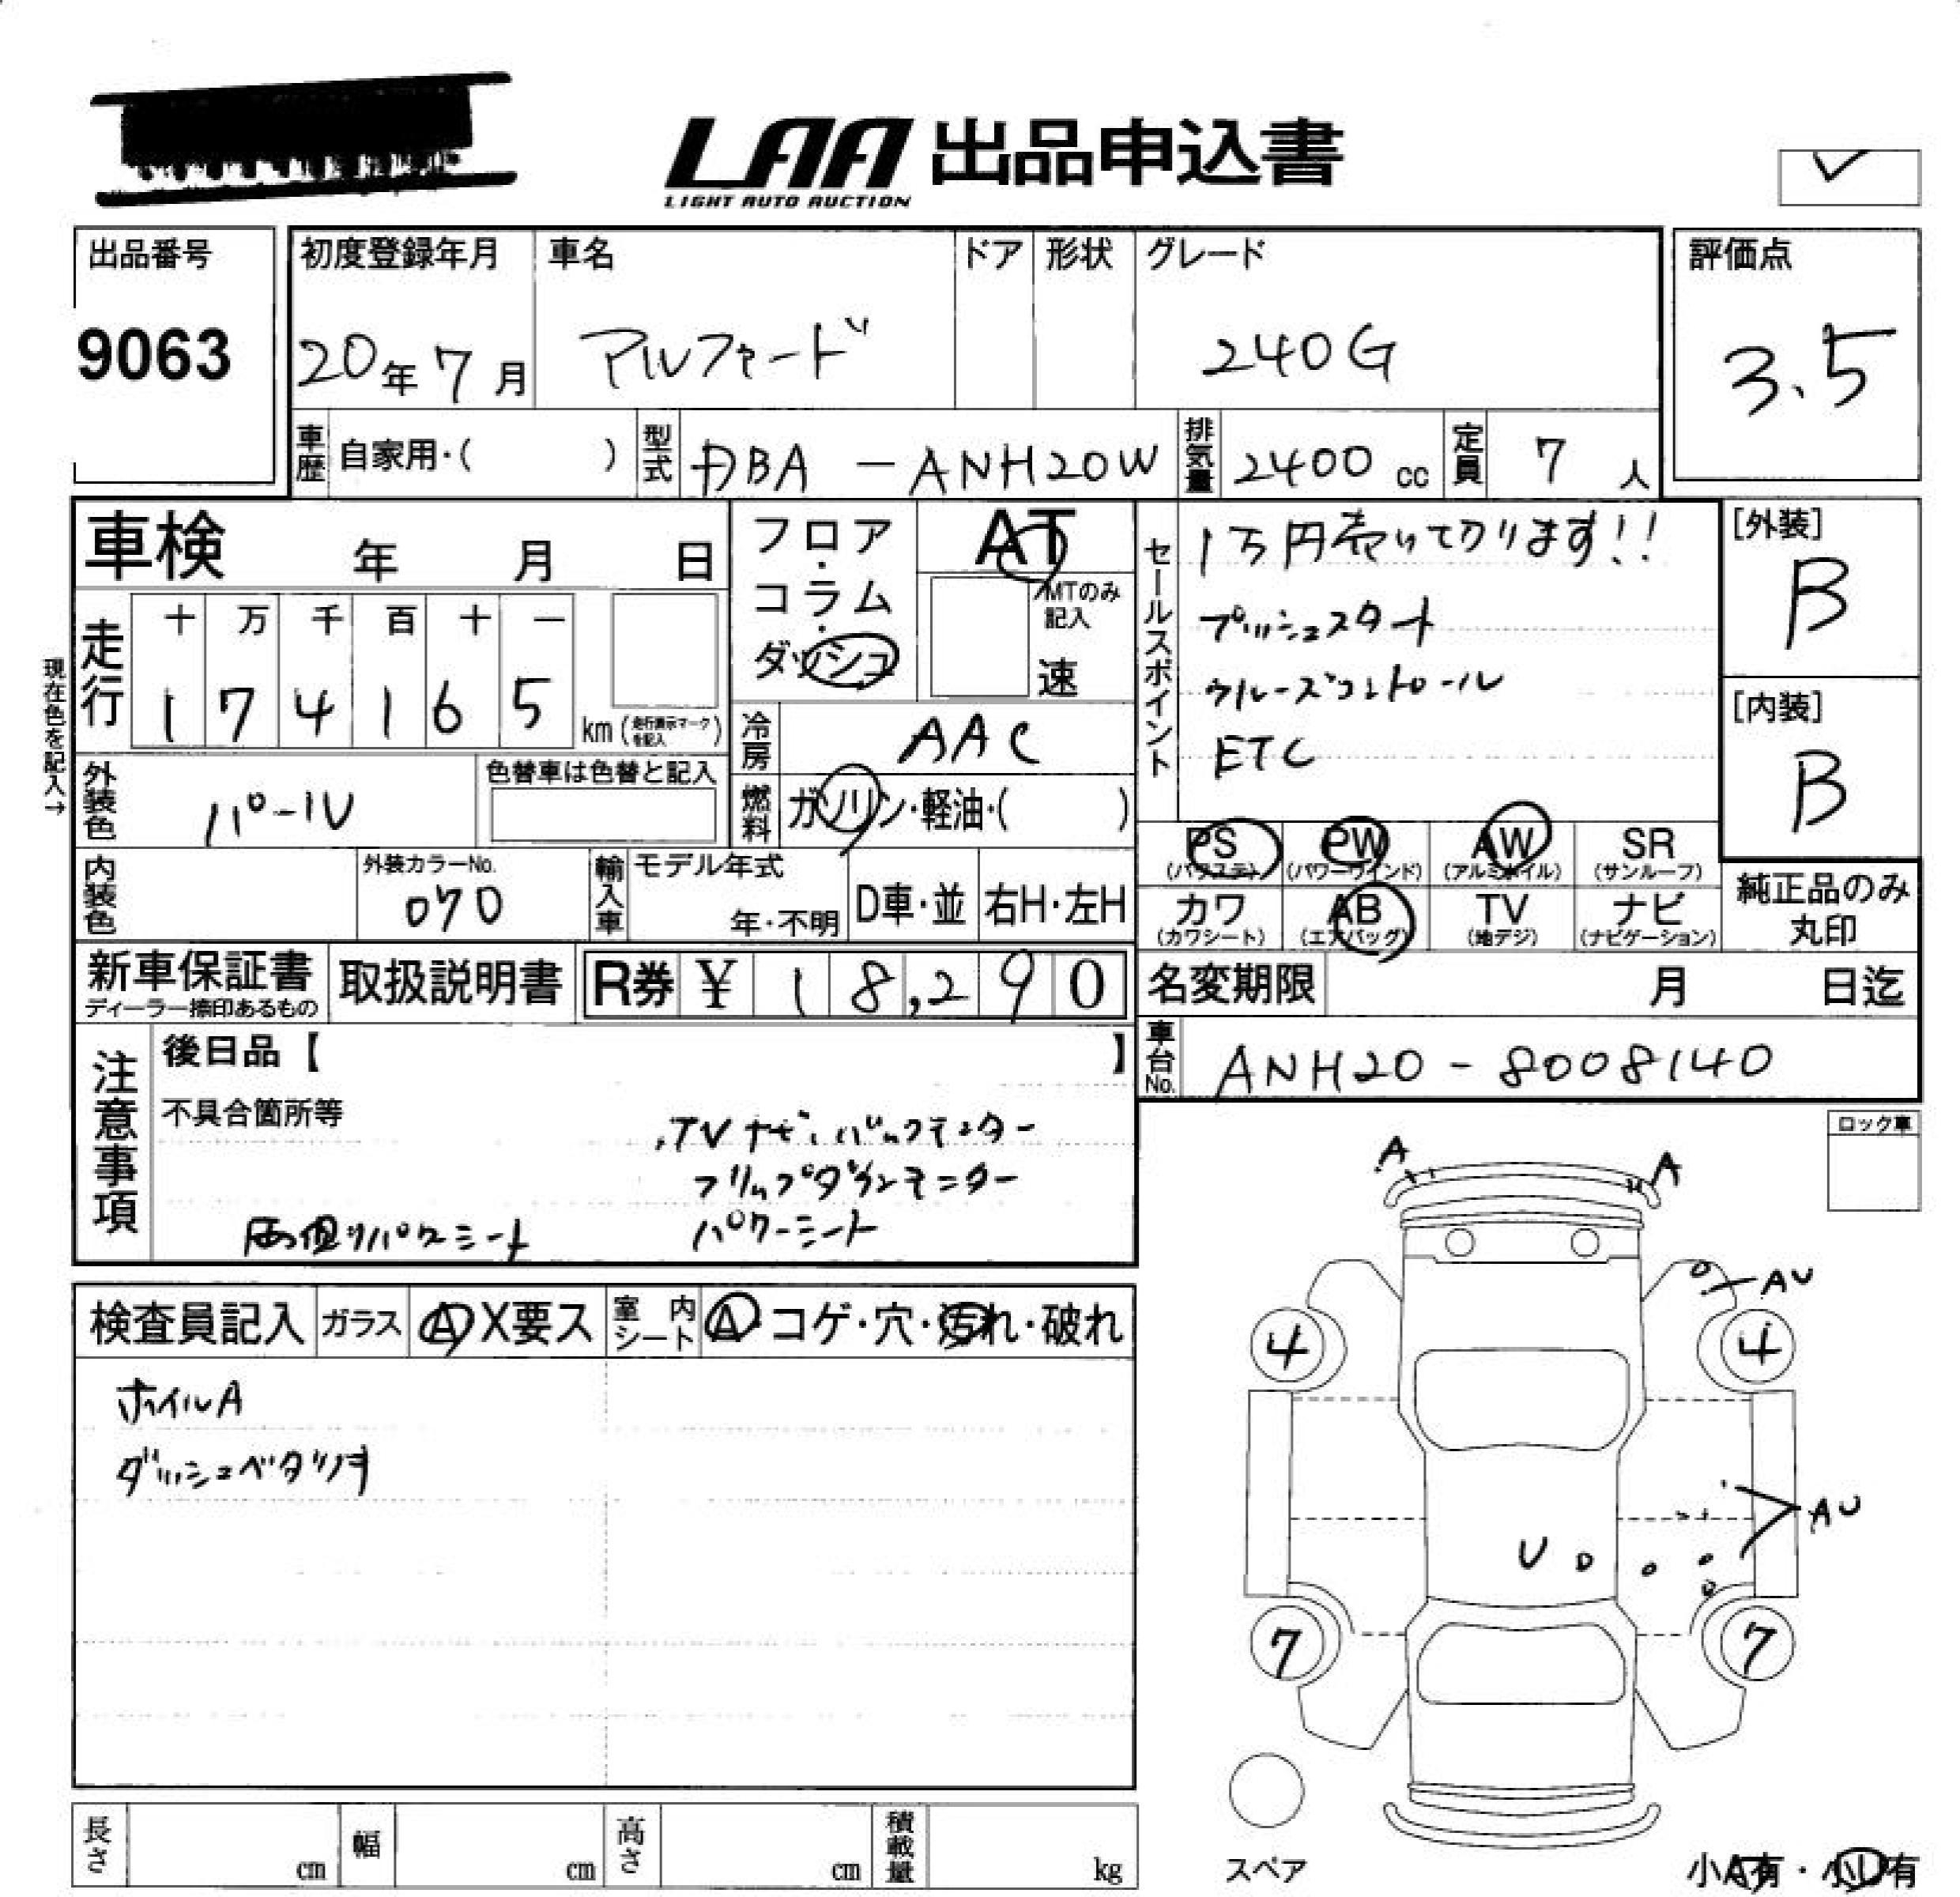 LAA 出品申込書
LIGHT AUTO AUCTION
出品番号
9063
初度登録年月
20年 7月
車名
アルファード
ドア
形状
グレード
240G
評価点
3.5
車歴 自家用・( )
型式 DBA - ANH20W
排気量 2400 cc
定員 7 人
車検 年 月 日
フロア・コラム・ダッシュ
AT
MTのみ記入
速
現在色を記入→
走行
十 万 千 百 十 一
1 7 4 1 6 5 km (走行表示マークを記入)
冷房 AAC
外装色 パール
色替車は色替と記入
燃料 ガソリン・軽油・( )
セールスポイント
1万円売り切ります!!
プッシュスタート
クルーズコントロール
ETC
[外装]
B
[内装]
B
PS (パワステ)
PW (パワーウインド)
AW (アルミホイル)
SR (サンルーフ)
カワ (カワシート)
AB (エアバッグ)
TV (地デジ)
ナビ (ナビゲーション)
純正品のみ丸印
内装色
外装カラーNo.
070
輸入車
モデル年式
年・不明
D車・並
右H・左H
新車保証書
ディーラー捺印あるもの
取扱説明書
R券 ¥ 18,290
名変期限 月 日迄
車台No. ANH20 - 8008140
注意事項
後日品【 】
不具合箇所等
TVナビ、バックモニター
フリップダウンモニター
両側リパワーシート
パワーシート
検査員記入
ガラス A X要ス
室内シート A・コゲ・穴・汚れ・破れ
ホイルA
ダッシュベタツキ
ロック車
A A
AU
4 4
AU
U
7 7
スペア
小A有・小U有
長さ cm
幅 cm
高さ cm
積載量 kg